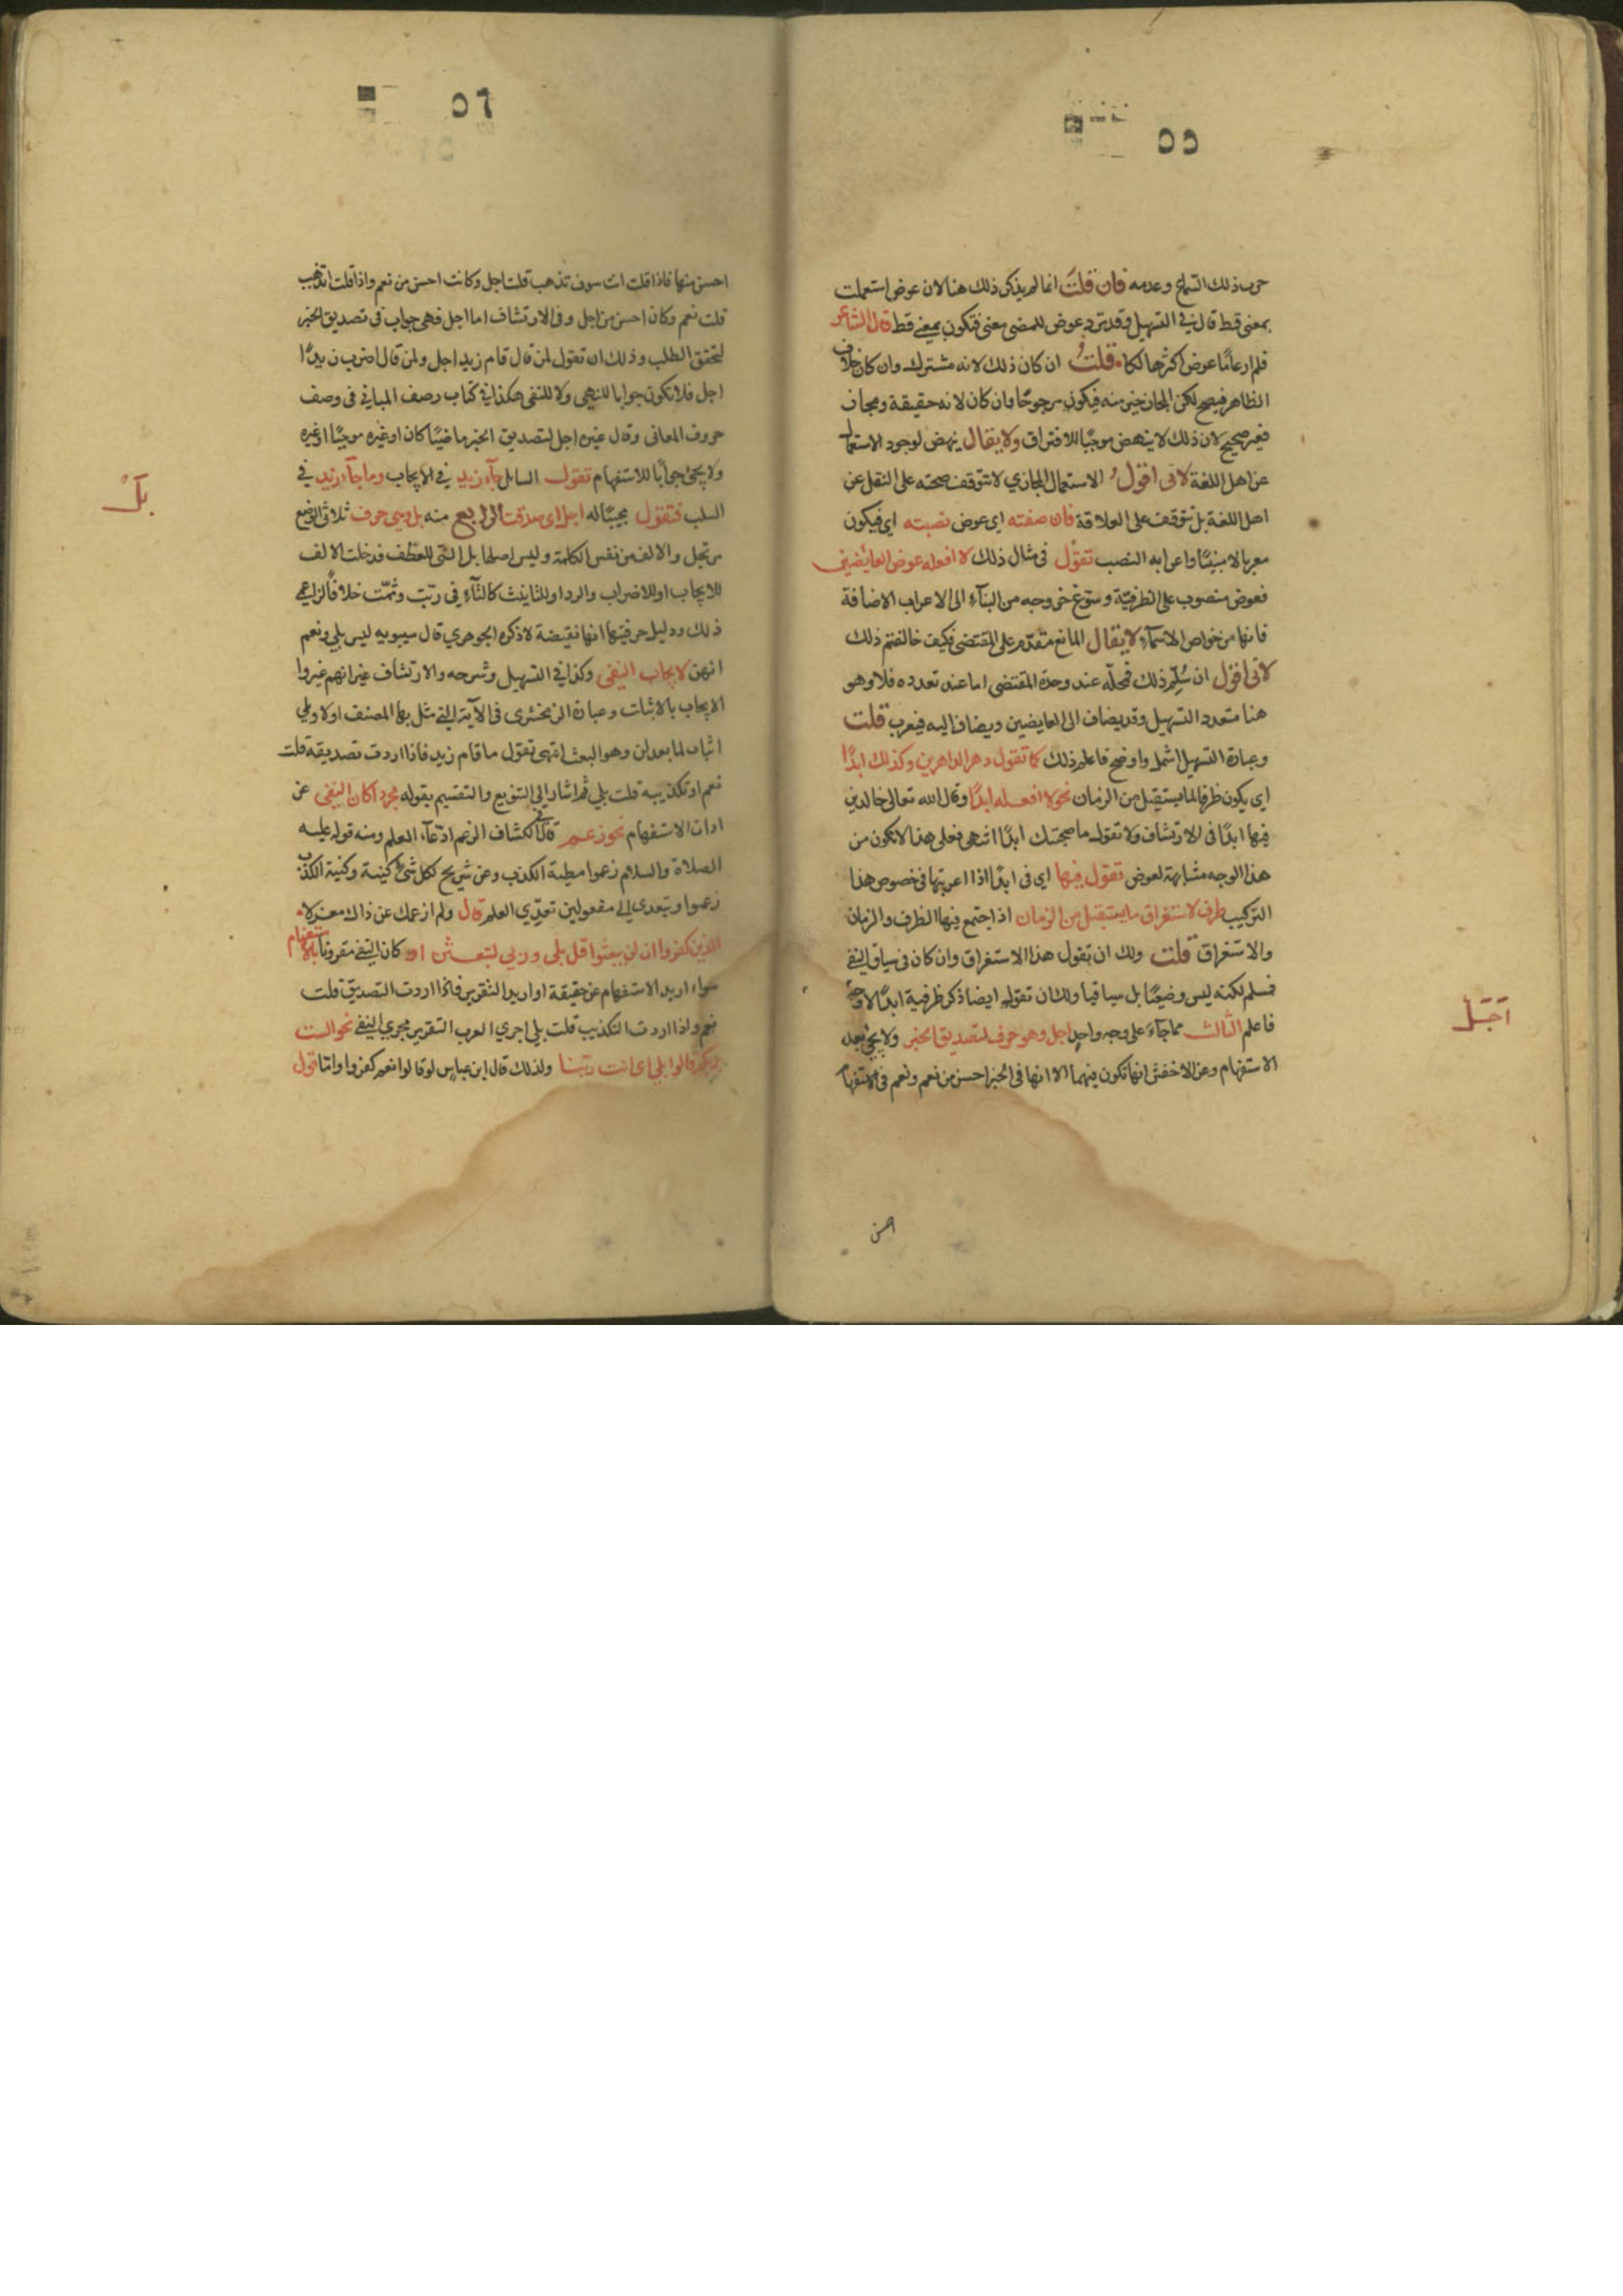 ٥٥
حرب ذلك السماع وعدمه فان قلت انما لم يذكر ذلك هنا لان عوض استعملت
بمعنى قط قال في التسهيل وقد ترد عوض للمضي معنى فتكون بمعنى قط قال الشاعر
فلم ار عاما عوض اكثر هالكا قلت ان كان ذلك لانه مشترك وان كان خلاف
الظاهر فيصح لكن المجاز خير منه فيكون مرجوحا وان كان لانه حقيقة ومجاز
فغير صحيح لان ذلك لا ينهض موجبا للافتراق ولا يقال ينهض لوجود الاستعمال
عن اهل اللغة لاني اقول الاستعمال المجازي لا تتوقف صحته على النقل عن
اهل اللغة بل تتوقف على العلاقة فان صفته اي عوض نصبته اي فيكون
معربا لا مبنيا واعرابه النصب تقول في مثال ذلك لا افعله عوض العايضين
فعوض منصوب على الظرفية وسوغ خروجه من البنآء الى الاعراب الاضافة
فانها من خواص الاسمآء لا يقال المانع مقدم على المقتضى فكيف خالفتم ذلك
لاني اقول ان سلم ذلك فمحله عند وحدة المقتضى اما عند تعدده فلا وهو
هنا متعدد التسهيل وقد يضاف الى العايضين ويضاف اليه فيعرب قلت
وعبارة التسهيل اشمل واوضح فاعلم ذلك كما تقول دهر الداهرين وكذلك ابدا
اي يكون ظرفا لما يستقبل من الزمان نحو لا افعله ابدا وقال الله تعالى خالدين
فيها ابدا في الارتشاف ولا تقول ما صحبتك ابدا انتهى فعلى هذا لا تكون من
هذا الوجه مشابهة لعوض تقول فيها اي في ابدا اذا اعربتها في خصوص هذا
التركيب ظرف لاستغراق ما يستقبل من الزمان اذ اجتمع فيها الظرف والزمان
والاستغراق قلت ولك ان تقول هذا الاستغراق وان كان في سياق النفي
فسلم لكنه ليس وضعيا بل سياقيا ولك ان تقول ايضا ذكر ظرفية ابدا لا وجه
فاعلم الثالث مما جآء على وجه واحد اجل وهو حرف لتصديق الخبر ولا يجئ بعد
الاستفهام وعن الاخفش انها تكون فيهما الا انها في الخبر احسن من نعم ونعم في الاستفهام
احسن
اجل
٥٦
احسن منها فاذا قلت انت سوف تذهب قلت اجل وكانت احسن من نعم واذا قلت اتذهب
قلت نعم وكان احسن من اجل وفي الارتشاف اما اجل فهي جواب في تصديق الخبر
لتحقق الطلب وذلك ان تقول لمن قال قام زيد اجل ولمن قال اضرب زيدا
اجل فلا تكون جوابا للنهي ولا للنفي هكذا في كتاب رصف المباني في وصف
حروف المعاني وقال غيره اجل لتصديق الخبر ماضيا كان او غيره موجبا او غيره
ولا يجئ جوابا للاستفهام تقول السايل جآء زيد في الايجاب وما جآء زيد في
السلب فتقول مجيبا له اجل اي صدقت الرابع منه بلى وهي حرف ثلاثي الوضع
مرتجل والالف من نفس الكلمة وليس اصلها بل التي للعطف فدخلت الالف
للايجاب او للاضراب والرد او للتانيث كالتآء في ربت وثمت خلافا لزاعمي
ذلك ودليل حرفيتها انها نقيضة لا ذكره الجوهري قال سيبويه ليس بلى ونعم
انهن لايجاب النفي وكذا في التسهيل وشرحه والارتشاف غير انهم غيروا
الايجاب بالاثبات وعبارة الزمخشري في الآية التي مثل بها المصنف اولا وبلى
اثبات لما بعد لن وهو البعث انتهى تقول ما قام زيد فاذا اردت تصديقه قلت
نعم او تكذيبه قلت بلى ثم اشار الى التنويع والتقسيم بقوله مجردا كان النفي عن
ادات الاستفهام نحو زعم قال في الكشاف الزعم ادعآء العلم ومنه قوله عليه
الصلاة والسلام زعموا مطية الكذب وعن شريح لكل شئ كنية وكنية الكذب
زعموا ويتعدى الى مفعولين تعدي العلم قال ولم ازعمك عن ذاك معزلا
الذين كفروا ان لن يبعثوا قل بلى وربي لتبعثن او كان النفي مقرونا بالاستفهام
سواء اريد الاستفهام عن حقيقة او اريد التقرير فاذا اردت التصديق قلت
نعم واذا اردت التكذيب قلت بلى اجري العرب التقرير مجرى النفي نحو الست
بربكم قالوا بلى اي انت ربنا ولذلك قال ابن عباس لو قالوا نعم كفروا وانما قول
بلى